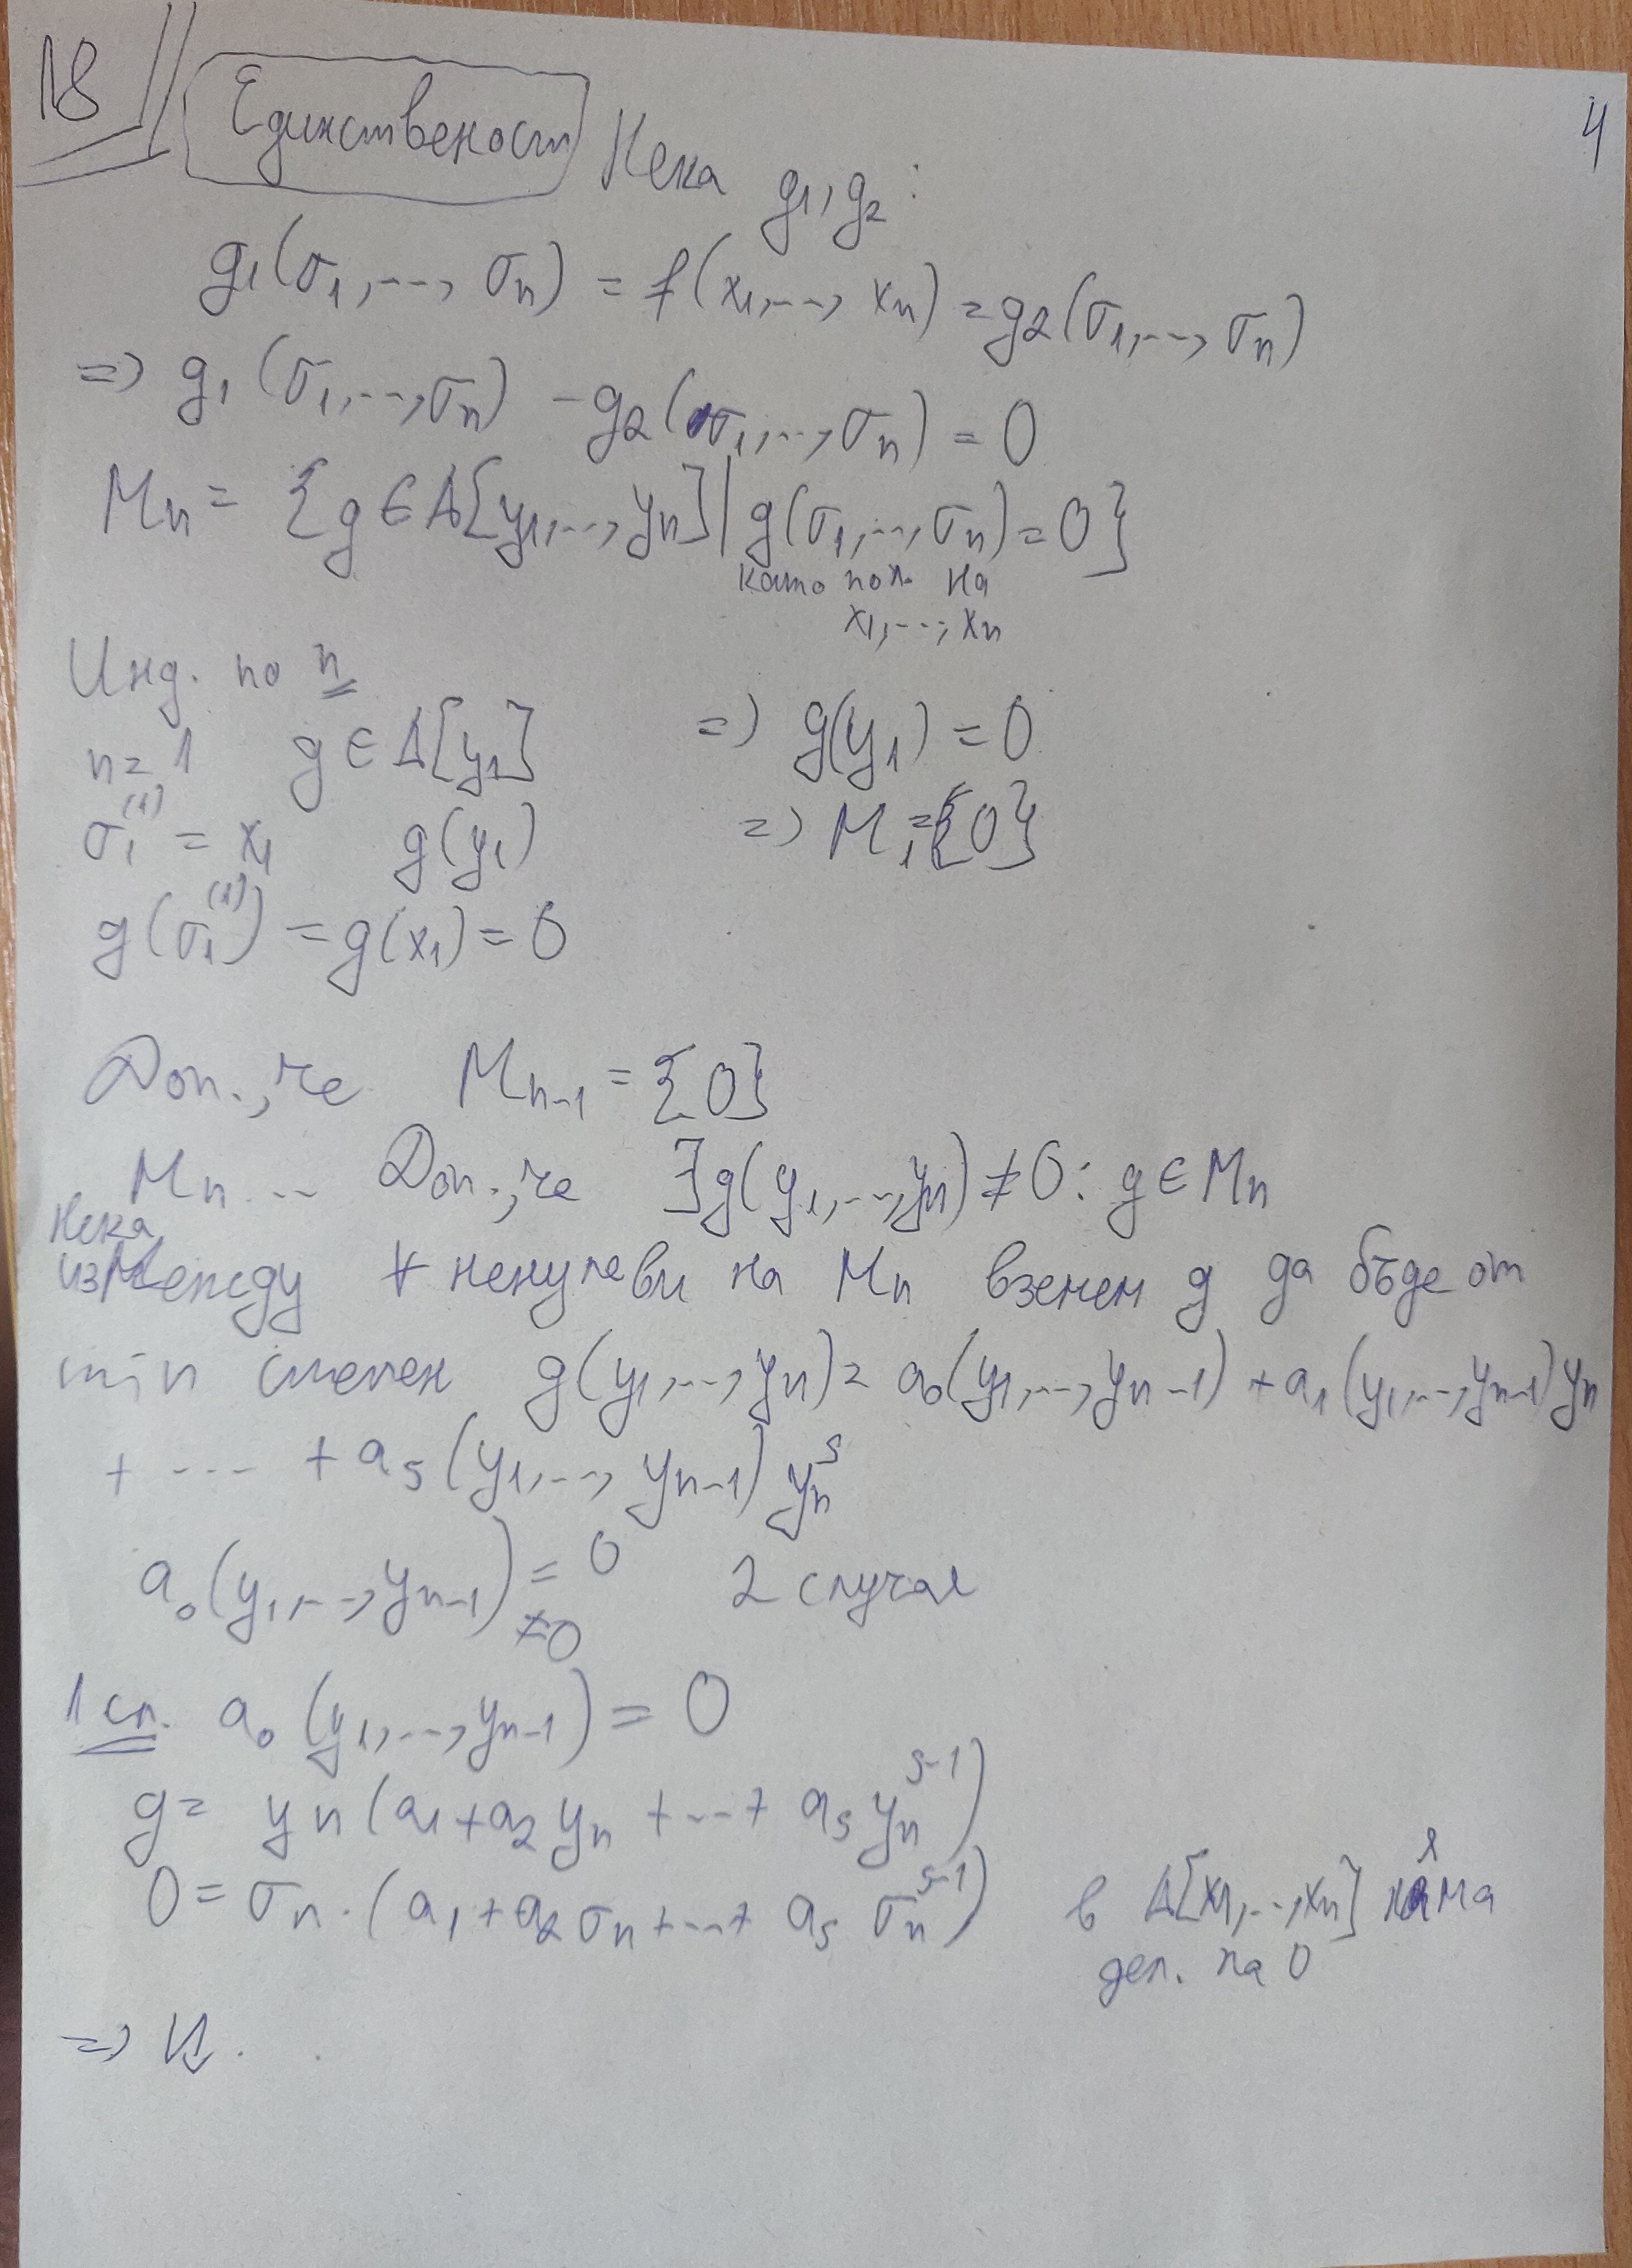 18 Единственост Нека g₁, g₂ :
4
g₁(σ₁,..., σₙ) = f(x₁,..., xₙ) = g₂(σ₁,..., σₙ)
=> g₁(σ₁,..., σₙ) - g₂(σ₁,..., σₙ) = 0
Mₙ = {g ∈ A[y₁,..., yₙ] | g(σ₁,..., σₙ) = 0}
като пол. на
x₁,..., xₙ
Инд. по n
n = 1 g ∈ A[y₁] => g(y₁) = 0
σ₁⁽¹⁾ = x₁ g(y₁) => M₁ = {0}
g(σ₁⁽¹⁾) = g(x₁) = 0
Доп., че Mₙ₋₁ = {0}
Mₙ ... Доп., че ∃g(y₁,..., yₙ) ≠ 0 : g ∈ Mₙ
Нека
измежду ∀ ненулеви на Mₙ вземем g да бъде от
min степен g(y₁,..., yₙ) = a₀(y₁,..., yₙ₋₁) + a₁(y₁,..., yₙ₋₁)yₙ
+ ... + aₛ(y₁,..., yₙ₋₁) yₙˢ
a₀(y₁,..., yₙ₋₁) = 0 2 случая
≠ 0
1 сл. a₀(y₁,..., yₙ₋₁) = 0
g = yₙ(a₁ + a₂yₙ + ... + aₛ yₙˢ⁻¹)
0 = σₙ.(a₁ + a₂σₙ + ... + aₛ σₙˢ⁻¹) в A[x₁,..., xₙ] няма
дел. на 0
=>